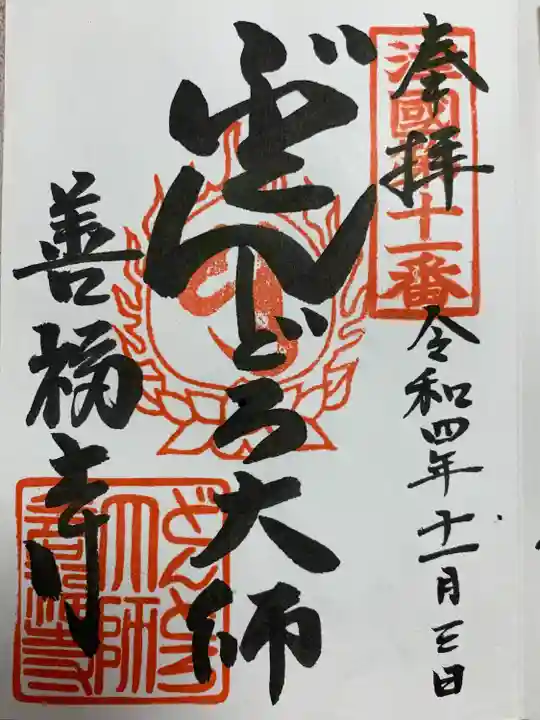 奉拝
淡國第十一番
令和四年十一月三日
どんどろ大師
善福寺
どんどろ
大師
善福寺